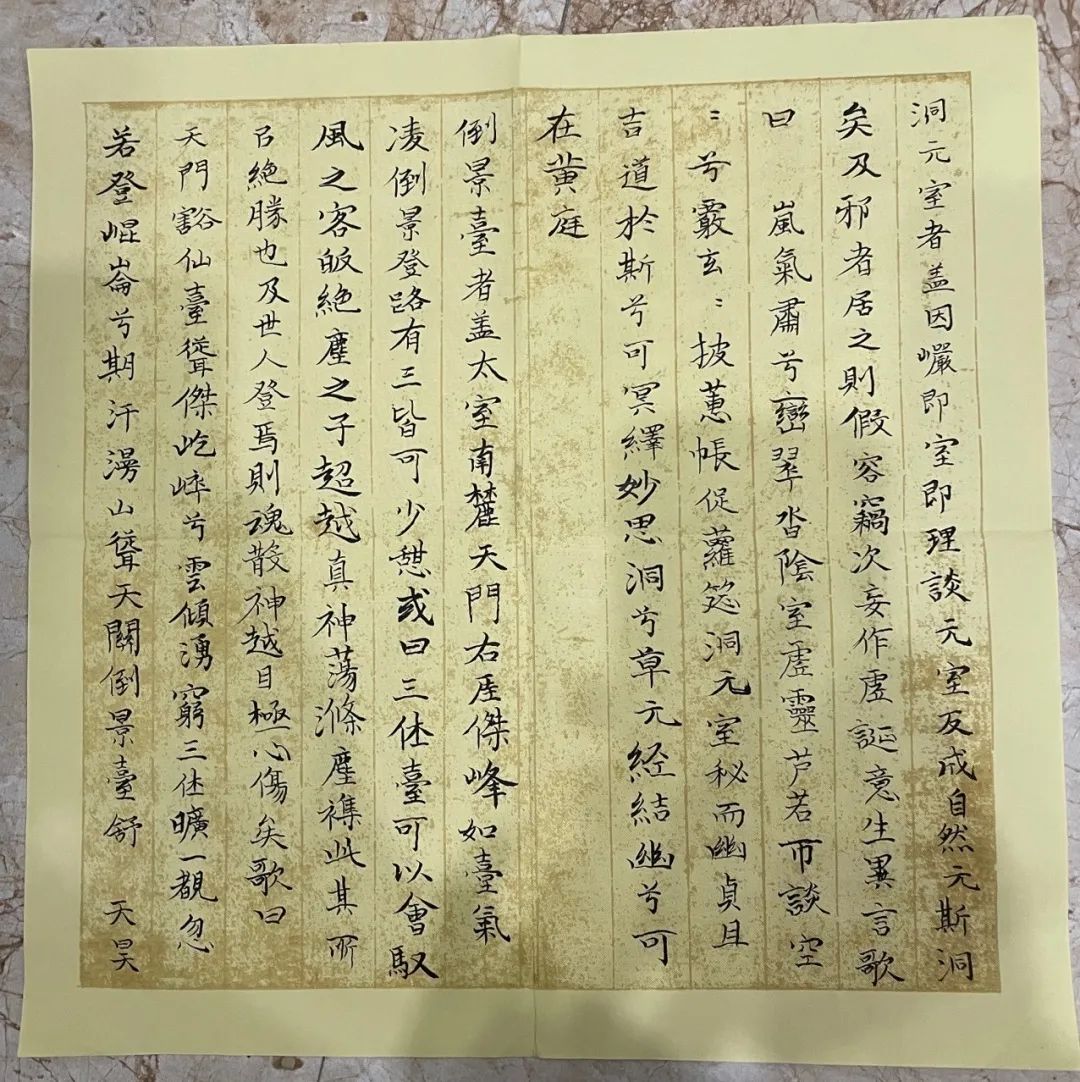 洞元室者盖因巖即室即理談元室反成自然元斯洞
矣及邪者居之則假容竊次妄作虛誕意生異言歌
曰 嵐氣肅兮巒翠沓陰室虛靈芦若帀談空
：兮覈玄：披蕙帳促蘿筵洞元室秘而幽貞且
吉道於斯兮可冥繹妙思洞兮草元经結幽兮可
在黄庭
倒景臺者盖太室南麓天門右厓傑峰如臺氣
凌倒景登路有三皆可少憇或曰三休臺可以會馭
風之客皈絶塵之子超越真神蕩滌塵襟此其所
㠯絶勝也及世人登焉則魂散神越目極心傷矣歌曰
天門豁仙臺聳傑屹崪兮雲傾湧窮三休曠一覩忽
若登崐崙兮期汗漫山聳天關倒景臺舒 天昊